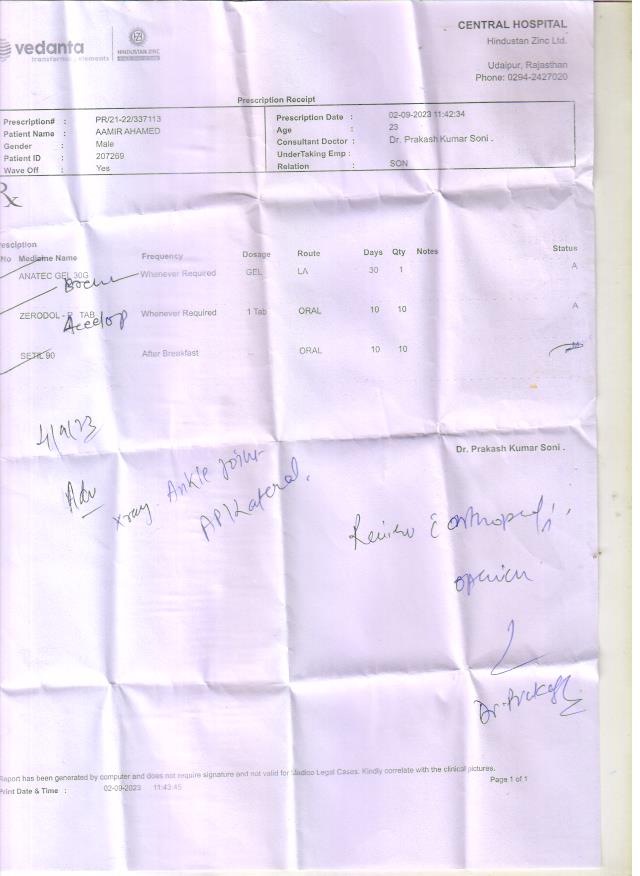 vedanta
transforming elements
HINDUSTAN ZINC
CENTRAL HOSPITAL
Hindustan Zinc Ltd.
Udaipur, Rajasthan
Phone: 0294-2427020
Prescription Receipt
Prescription# : PR/21-22/337113 Prescription Date : 02-09-2023 11:42:34
Patient Name : AAMIR AHAMED Age : 23
Gender : Male Consultant Doctor : Dr. Prakash Kumar Soni .
Patient ID : 207269 UnderTaking Emp :
Wave Off : Yes Relation : SON
Rx
resciption
No Medicine Name Frequency Dosage Route Days Qty Notes Status
ANATEC GEL 30G Whenever Required GEL LA 30 1 A
ZERODOL - P TAB Whenever Required 1 Tab ORAL 10 10 A
Aceclop
SETIL 90 After Breakfast -- ORAL 10 10
4/9/23
Dr. Prakash Kumar Soni .
Adv
xray Ankle joint
AP/Lateral.
Review c orthopedic
opinion
Dr. Prakash
Report has been generated by computer and does not require signature and not valid for Medico Legal Cases. Kindly correlate with the clinical pictures.
Page 1 of 1
Print Date & Time : 02-09-2023 11:43:45